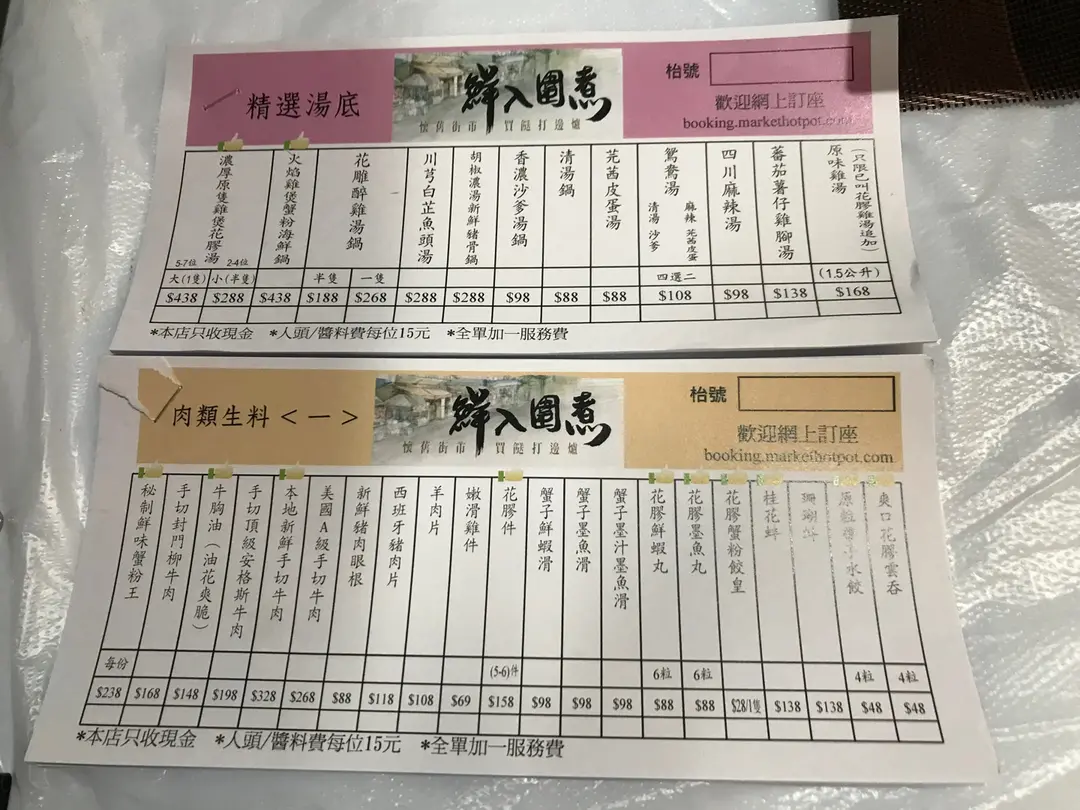 精選湯底
鮮入圍煮
懷舊街市 買餸打邊爐
枱號
歡迎網上訂座
booking.markethotpot.com
濃厚原隻雞煲花膠湯
5-7位
2-4位
大(1隻)
小(半隻)
$438
$288
火焰雞煲蟹粉海鮮鍋
$438
花雕醉雞湯鍋
半隻
一隻
$188
$268
川芎白芷魚頭湯
$288
胡椒濃湯新鮮豬骨鍋
$288
香濃沙爹湯鍋
$98
清湯鍋
$88
芫茜皮蛋湯
$88
鴛鴦湯
清湯 沙爹
麻辣 芫茜皮蛋
四選二
$108
四川麻辣湯
$98
蕃茄薯仔雞腳湯
$138
原味雞湯
(只限已叫花膠雞湯追加)
(1.5公升)
$168
*本店只收現金 *人頭/醬料費每位15元 *全單加一服務費
肉類生料<一>
鮮入圍煮
懷舊街市 買餸打邊爐
枱號
歡迎網上訂座
booking.markethotpot.com
秘制鮮味蟹粉王
每份
$238
手切封門柳牛肉
$168
牛胸油(油花爽脆)
$148
手切頂級安格斯牛肉
$198
本地新鮮手切牛肉
$328
美國A級手切牛肉
$268
新鮮豬肉眼根
$88
西班牙豬肉片
$118
羊肉片
$108
嫩滑雞件
$69
花膠件
(5-6)件
$158
蟹子鮮蝦滑
$98
蟹子墨魚滑
$98
蟹子墨汁墨魚滑
$98
花膠鮮蝦丸
6粒
$88
花膠墨魚丸
6粒
$88
花膠蟹粉餃皇
$28/1隻
桂花蚌
$138
珊瑚蚌
$138
原粒帶子水餃
4粒
$48
爽口花膠雲吞
4粒
$48
*本店只收現金 *人頭/醬料費每位15元 *全單加一服務費